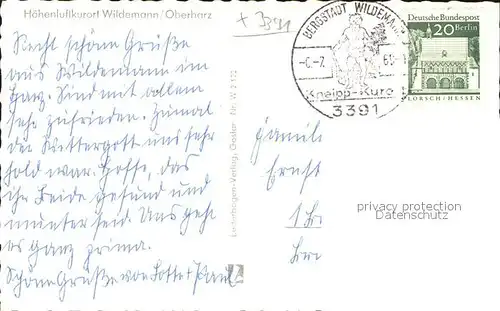 Höhenluftkurort Wildemann/Oberharz
+ 3391
Recht schöne Grüße
aus Wildemann im
Harz. Sind mit allem
sehr zufrieden. Zumal
der Wettergott uns sehr
hold war. Hoffe, das
ihr beide gesund und
munter seid. Uns geht
es ganz prima.
Schöne Grüße von Lotte + Paul
Verlag, Goslar Nr. W 2 122
BERGSTADT WILDEMANN
Kneipp-Kuro
3391
Deutsche Bundespost
20 Berlin
LORSCH/HESSEN
Familie
Ernst
privacy protection
Datenschutz